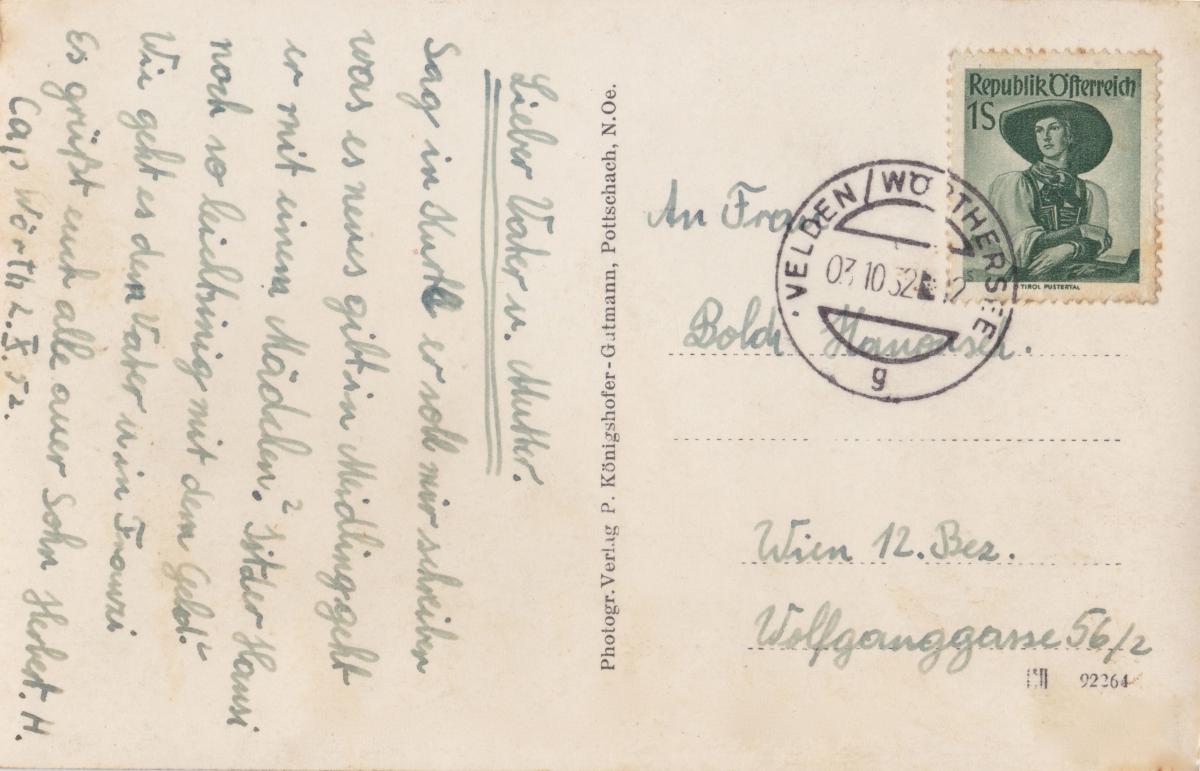 Lieber Vater u. Mutter.
Sag in Kurtl er soll mir schreiben
was es neues gibt in Meidling geht
er mit einem Mädchen? Ist der Hansi
noch so leichtsinig mit dem Geld?
Wie geht es dem Vater u in Franzi
Es grüßt euch alle euer Sohn Herbert. H.
Cap Wörth 2. X. 52.
Photogr. Verlag P. Königshofer-Gutmann, Pottschach, N.Oe.
Republik Österreich
1S
TIROL PUSTERTAL
VELDEN / WÖRTHERSEE
03 10 52
g
An Frau
Wien 12. Bez.
Wolfganggasse 56/2
92264